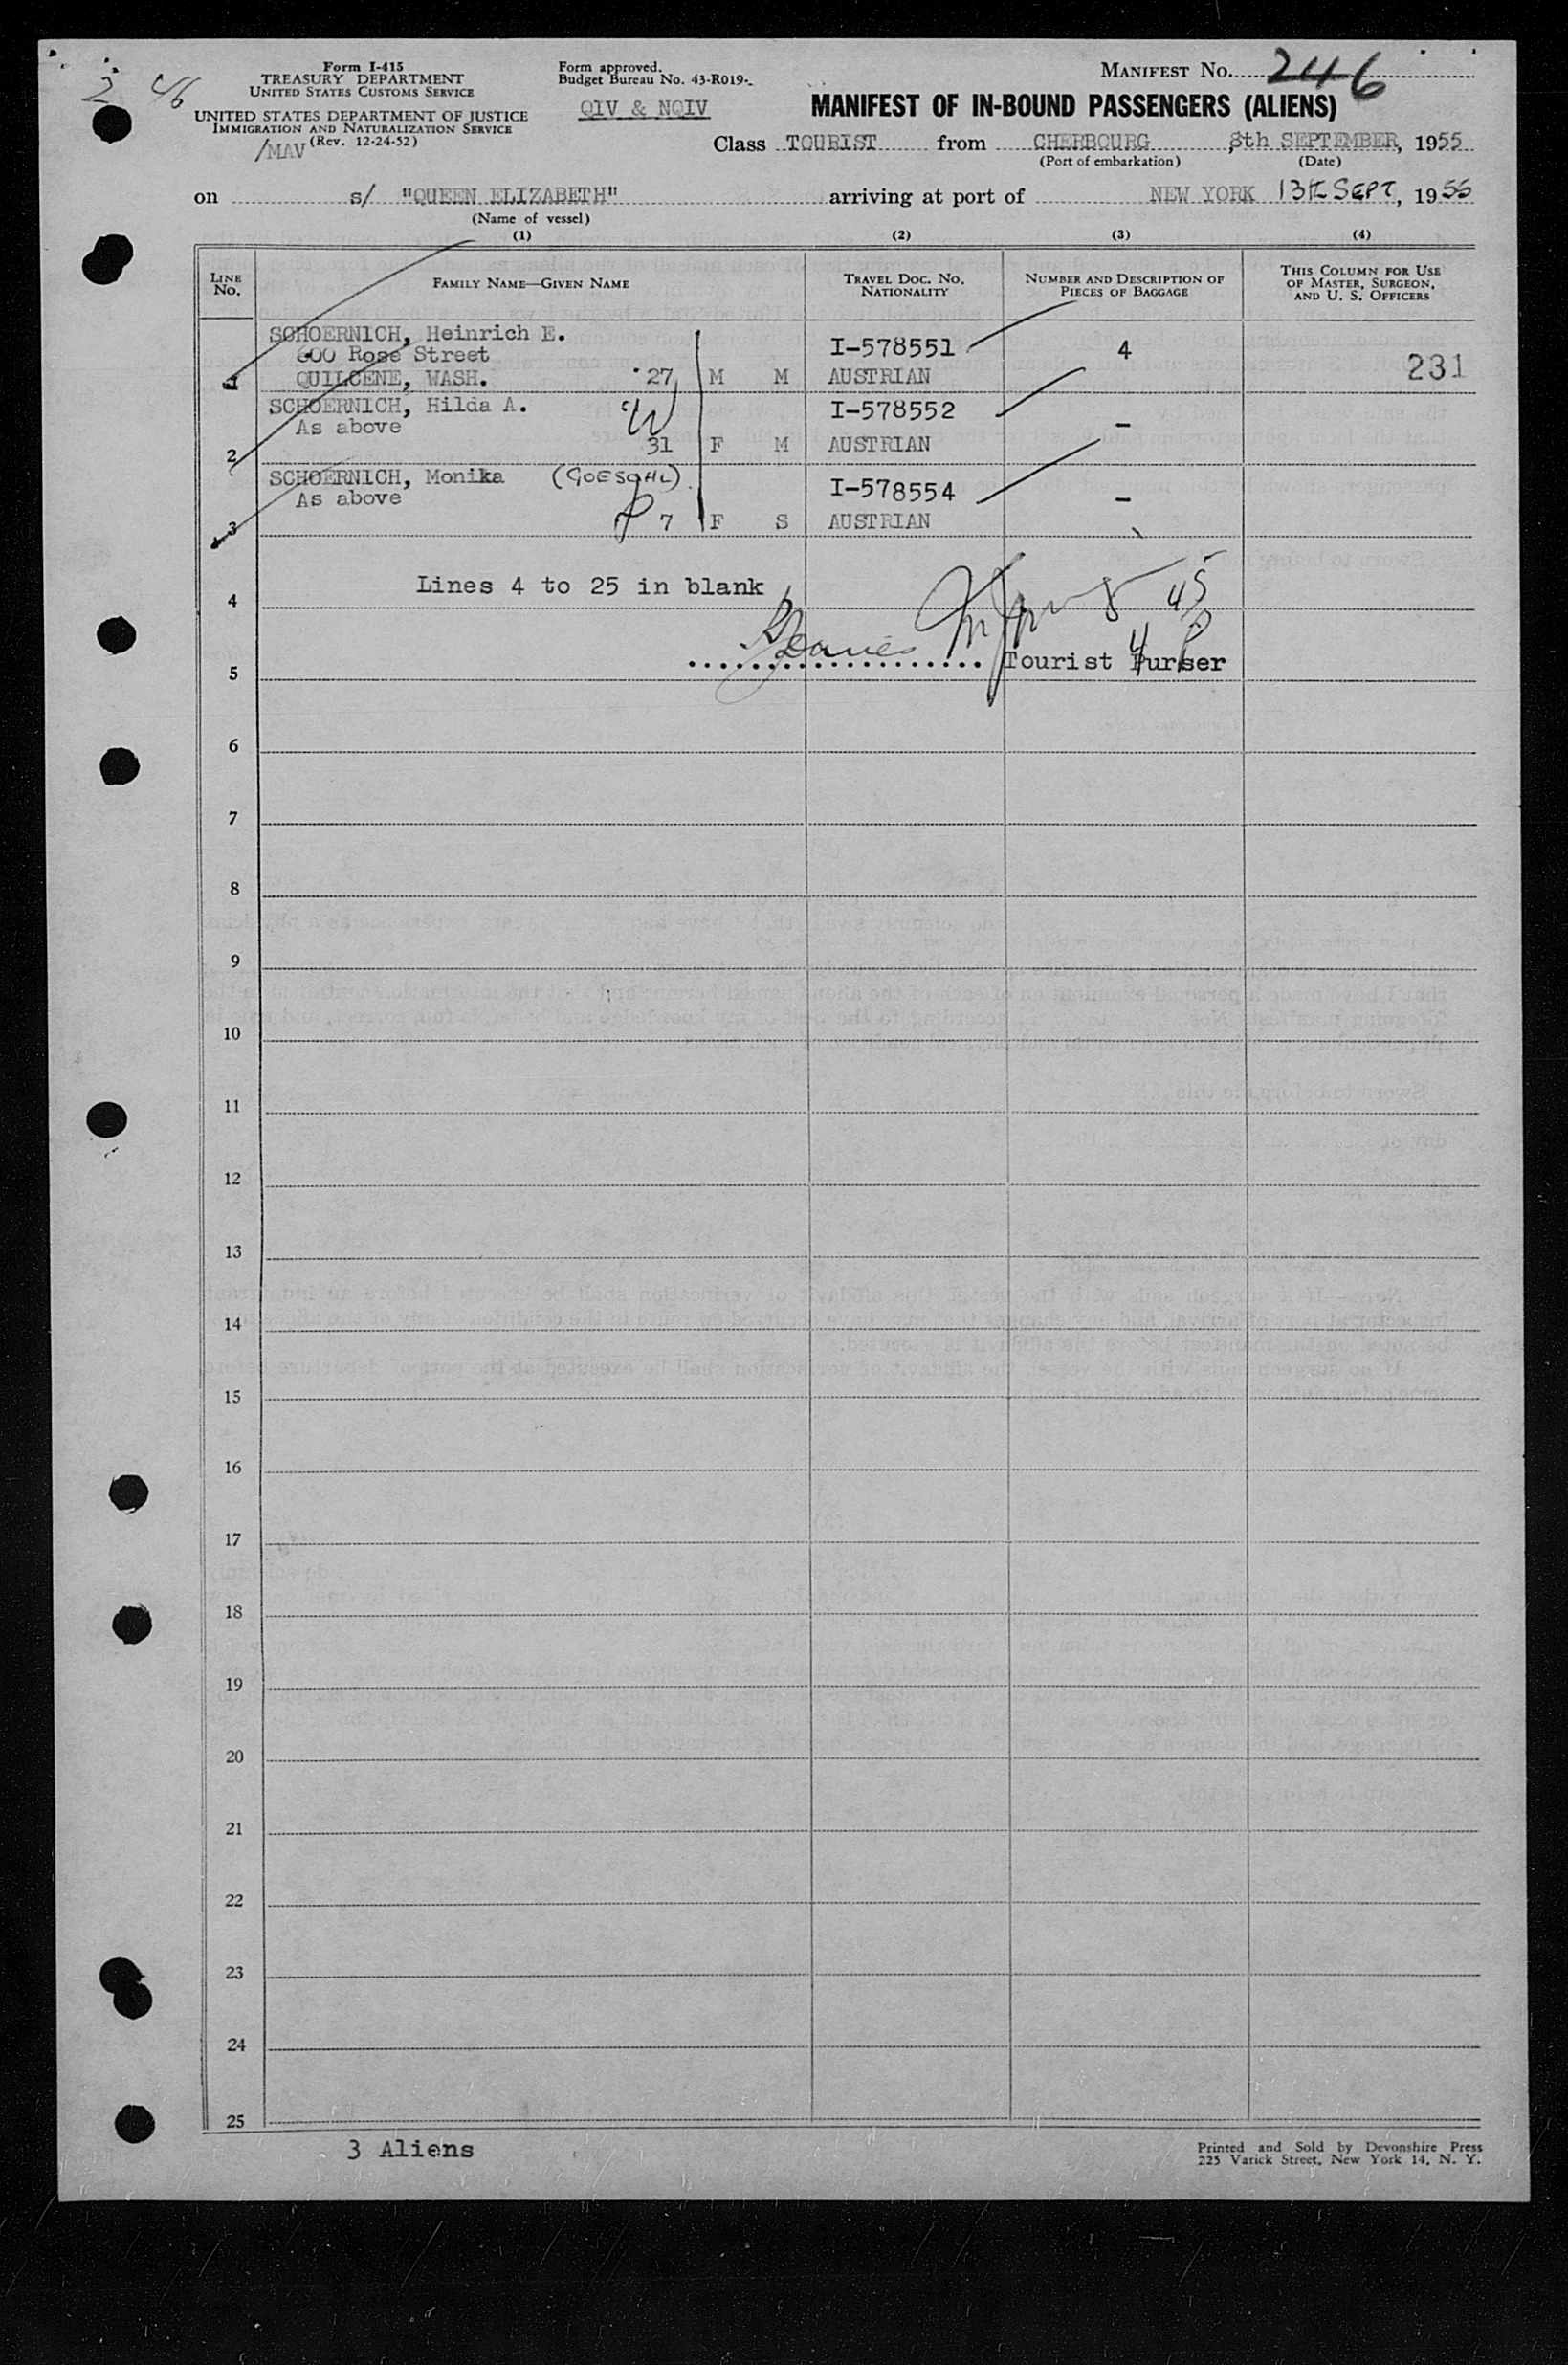 2 46
Form I-415
TREASURY DEPARTMENT
UNITED STATES CUSTOMS SERVICE
UNITED STATES DEPARTMENT OF JUSTICE
IMMIGRATION AND NATURALIZATION SERVICE
(Rev. 12-24-52)
/MAV
Form approved.
Budget Bureau No. 43-R019-
QIV & NQIV
MANIFEST NO. 246
MANIFEST OF IN-BOUND PASSENGERS (ALIENS)
Class TOURIST from CHERBOURG, 8th SEPTEMBER, 1955
(Port of embarkation) (Date)
on s/ "QUEEN ELIZABETH" arriving at port of NEW YORK 13th SEPT, 1955
(Name of vessel)
(1) (2) (3) (4)
LINE NO.
FAMILY NAME—GIVEN NAME
TRAVEL DOC. NO. NATIONALITY
NUMBER AND DESCRIPTION OF PIECES OF BAGGAGE
THIS COLUMN FOR USE OF MASTER, SURGEON, AND U. S. OFFICERS
SCHOERNICH, Heinrich E.
600 Rose Street I-578551 4 231
1 QUILCENE, WASH. 27 M M AUSTRIAN
SCHOERNICH, Hilda A. I-578552 -
As above W
2 31 F M AUSTRIAN
SCHOERNICH, Monika (GOESCHL) I-578554 -
As above
3 7 F S AUSTRIAN
Lines 4 to 25 in blank
4
Tourist Purser
5
6
7
8
9
10
11
12
13
14
15
16
17
18
19
20
21
22
23
24
25
3 Aliens
Printed and Sold by Devonshire Press
225 Varick Street, New York 14, N. Y.